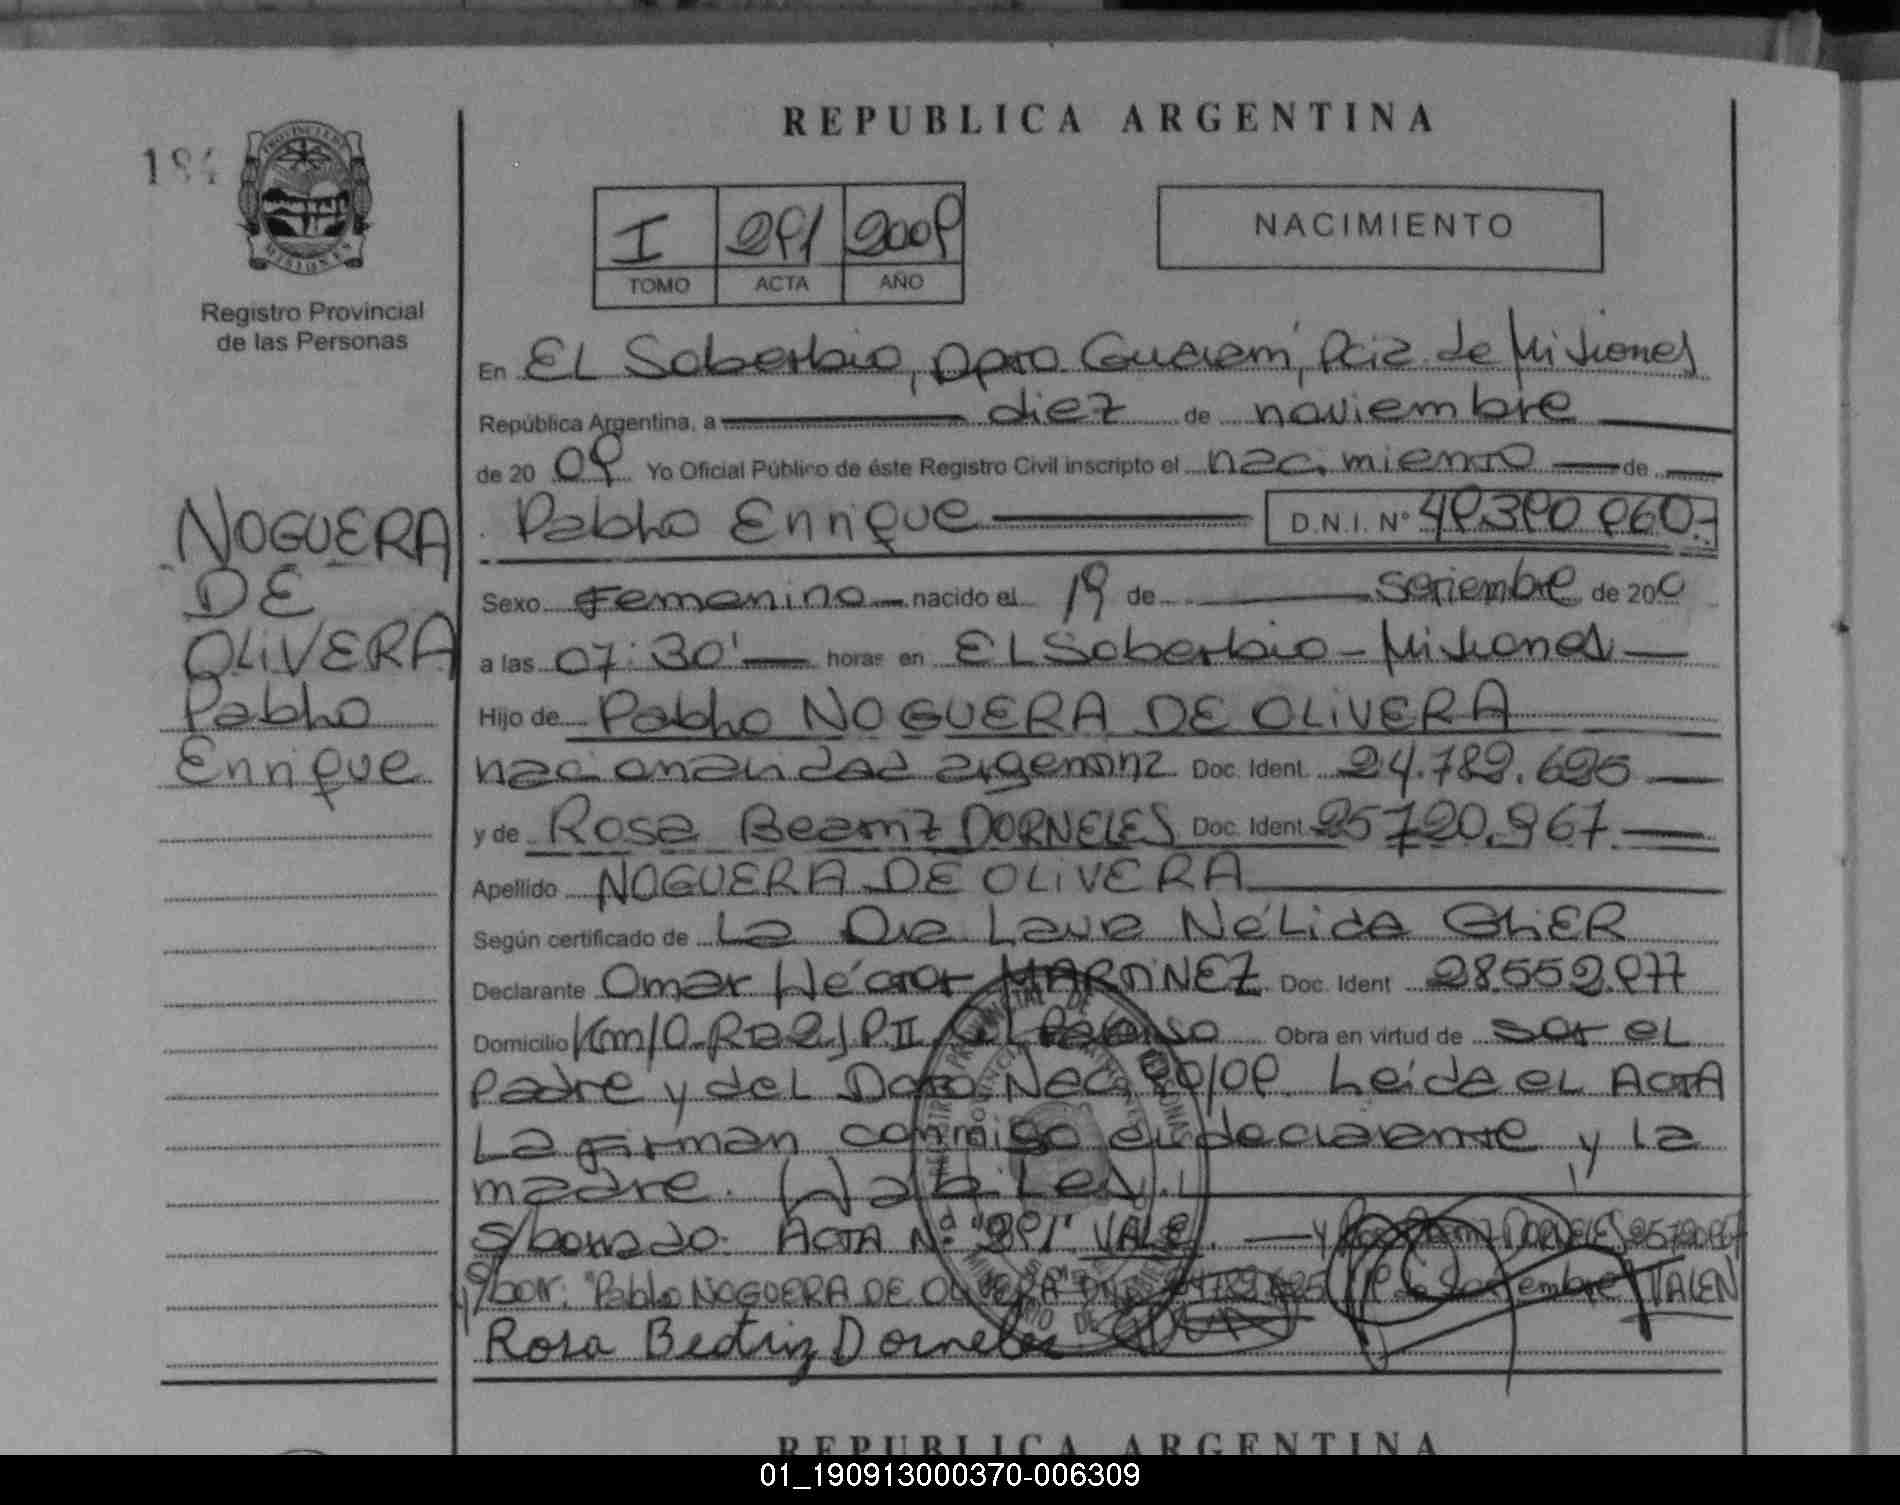 REPUBLICA ARGENTINA
184
I 291 2009
TOMO ACTA AÑO
NACIMIENTO
Registro Provincial
de las Personas
En EL Soberbio, Dpto Guaraní, Pcia. de Misiones
República Argentina, a diez de noviembre
de 20 09 Yo Oficial Público de éste Registro Civil inscripto el nacimiento de
Pablo Enrique D.N.I. Nº 49.390.960.-
NOGUERA
DE
OLIVERA
Pablo
Enrique
Sexo Femenino nacido el 19 de septiembre de 200
a las 07:30' horas en EL Soberbio - Misiones
Hijo de Pablo NOGUERA DE OLIVERA
nacionalidad argentina Doc. Ident. 24.782.625
y de Rosa Beatriz DORNELES Doc. Ident. 25720.967
Apellido NOGUERA DE OLIVERA
Según certificado de La Dra Laura Nélida GLIER
Declarante Omar Héctor MARTINEZ Doc. Ident 28.552.977
Domicilio Km10 Obra en virtud de ser el
padre y del Dcto. Nac. 90/09. Leída el ACTA
La firman conmigo el declarante y la
madre.
S/borrado: ACTA Nº 291 VALE. y Rosa Beatriz DORNELES 25720967
y S/borr: "Pablo NOGUERA DE OLIVERA DNI 24782625 19 de septiembre" VALEN
Rosa Beatriz Dorneles
REPUBLICA ARGENTINA
01_190913000370-006309